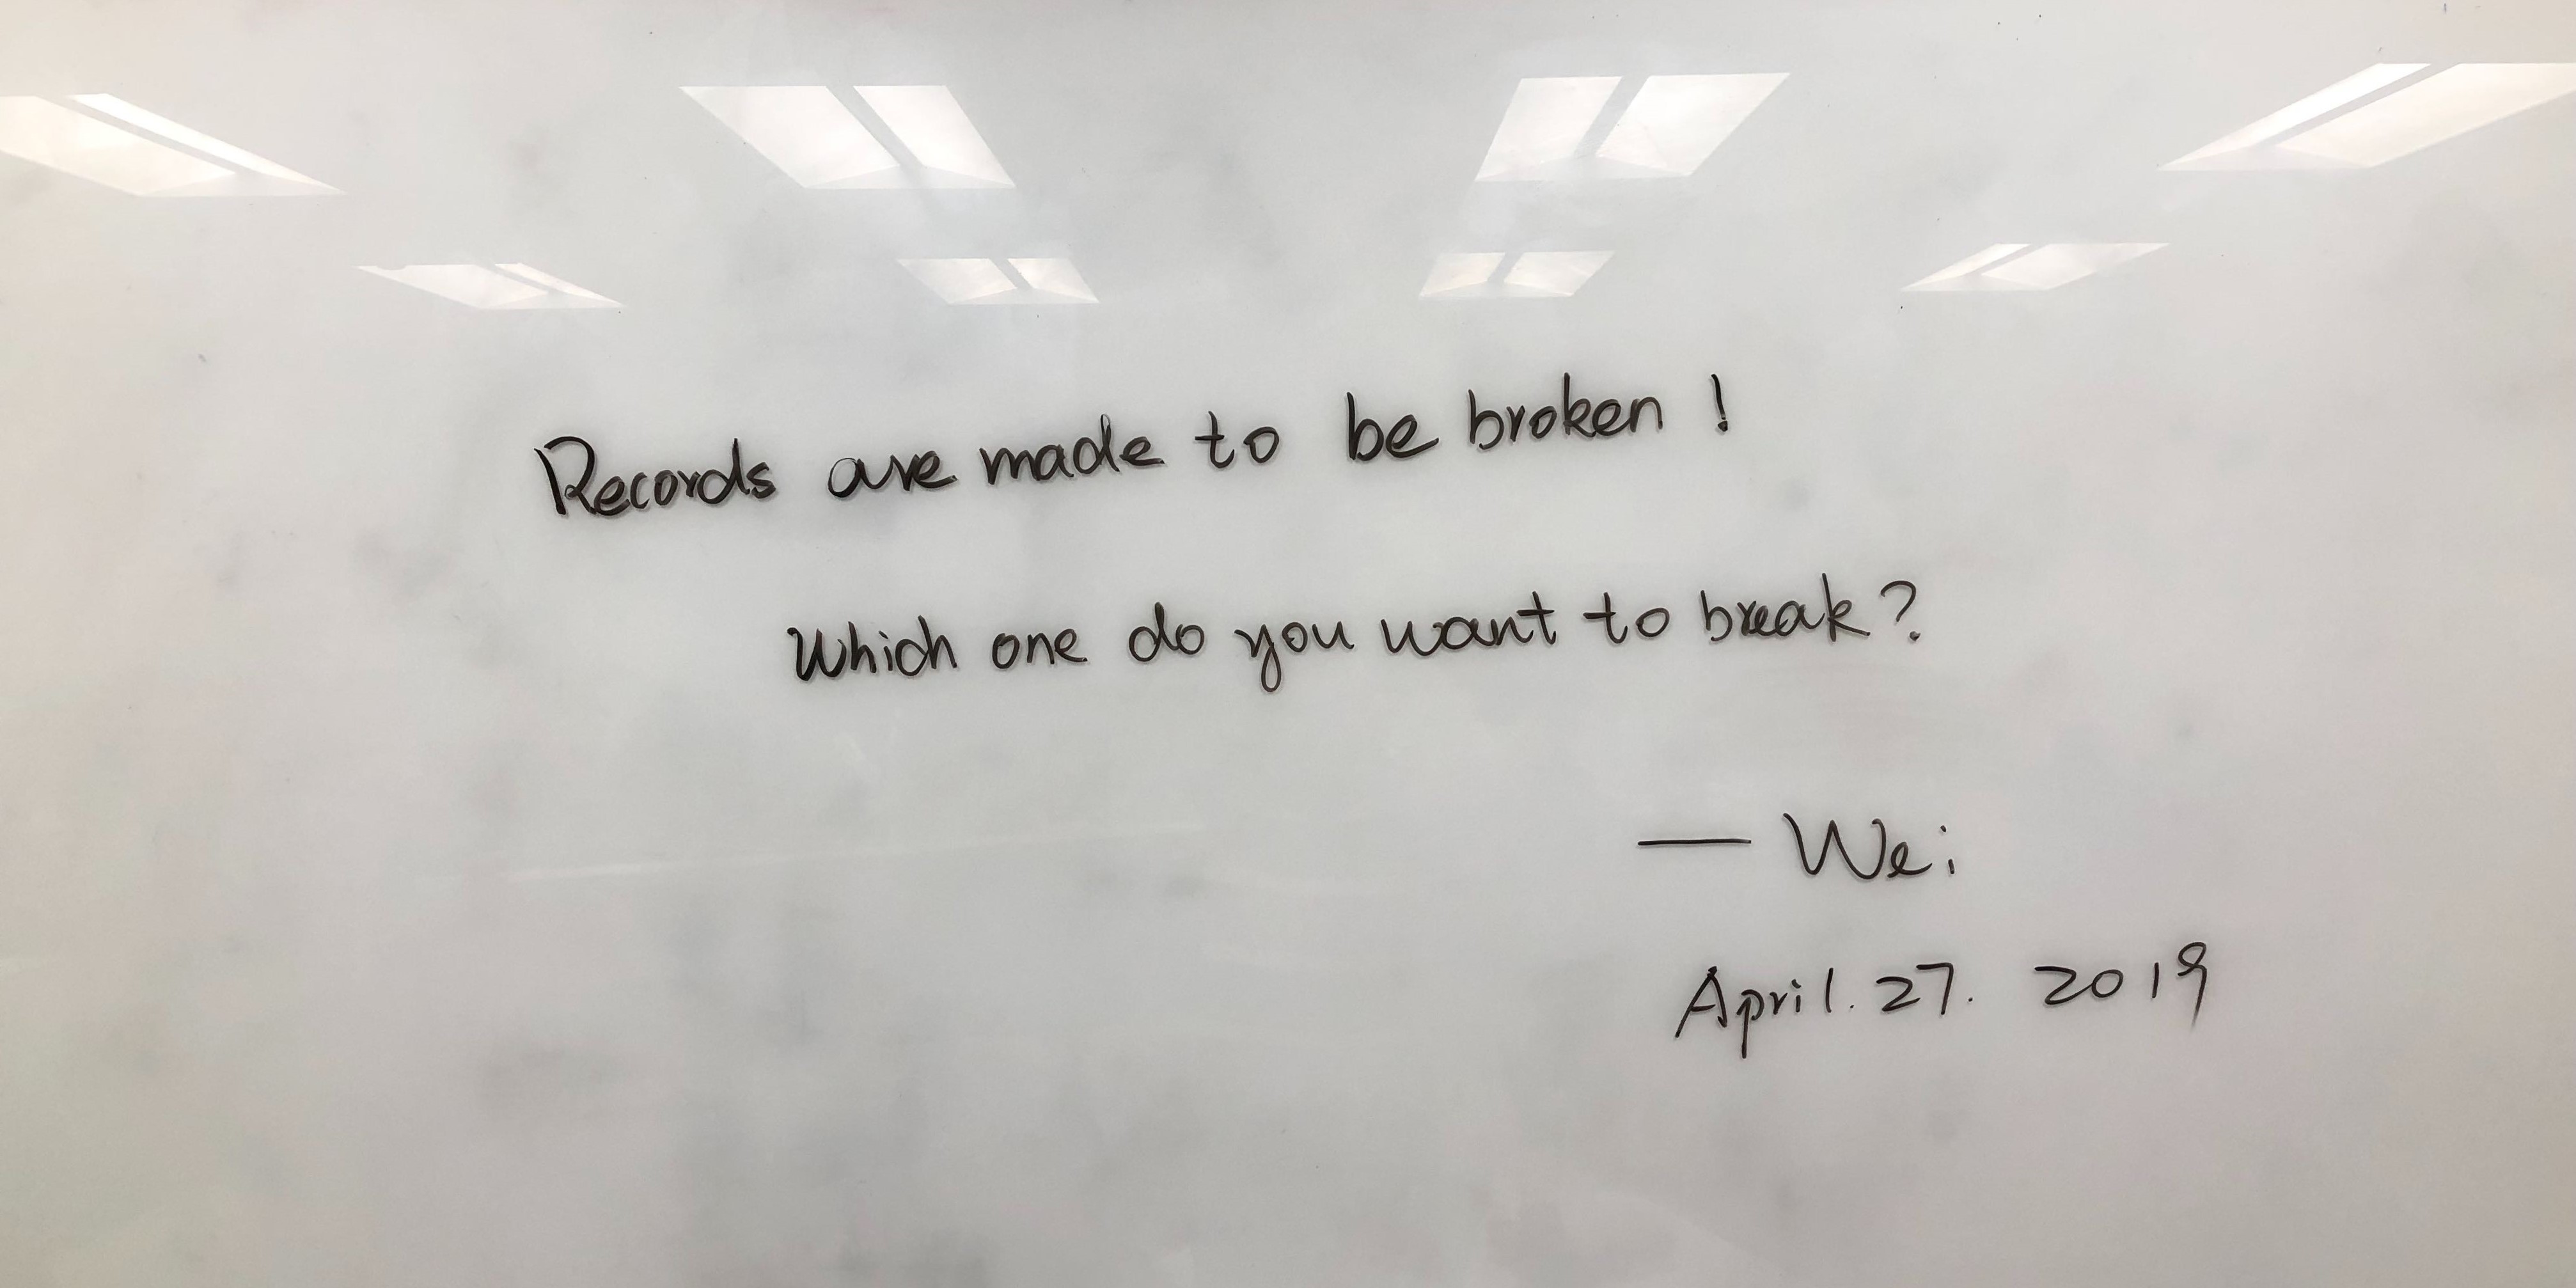 Records are made to be broken!
Which one do you want to break?
— Wei
April. 27. 2019